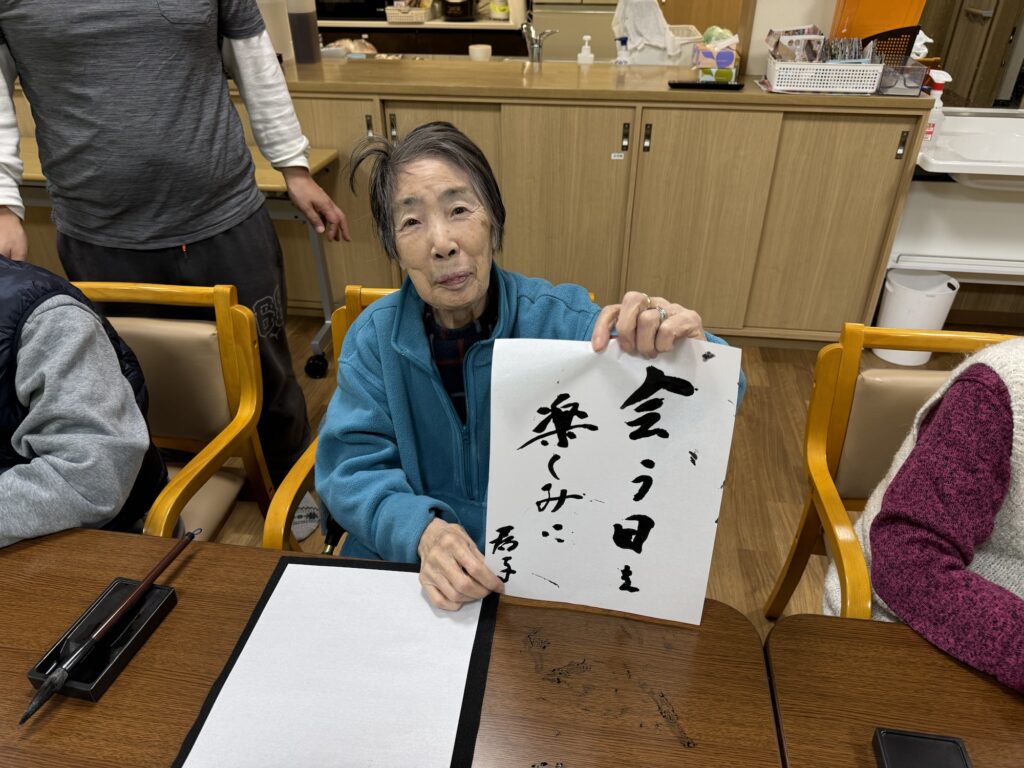 会う日を
楽しみに